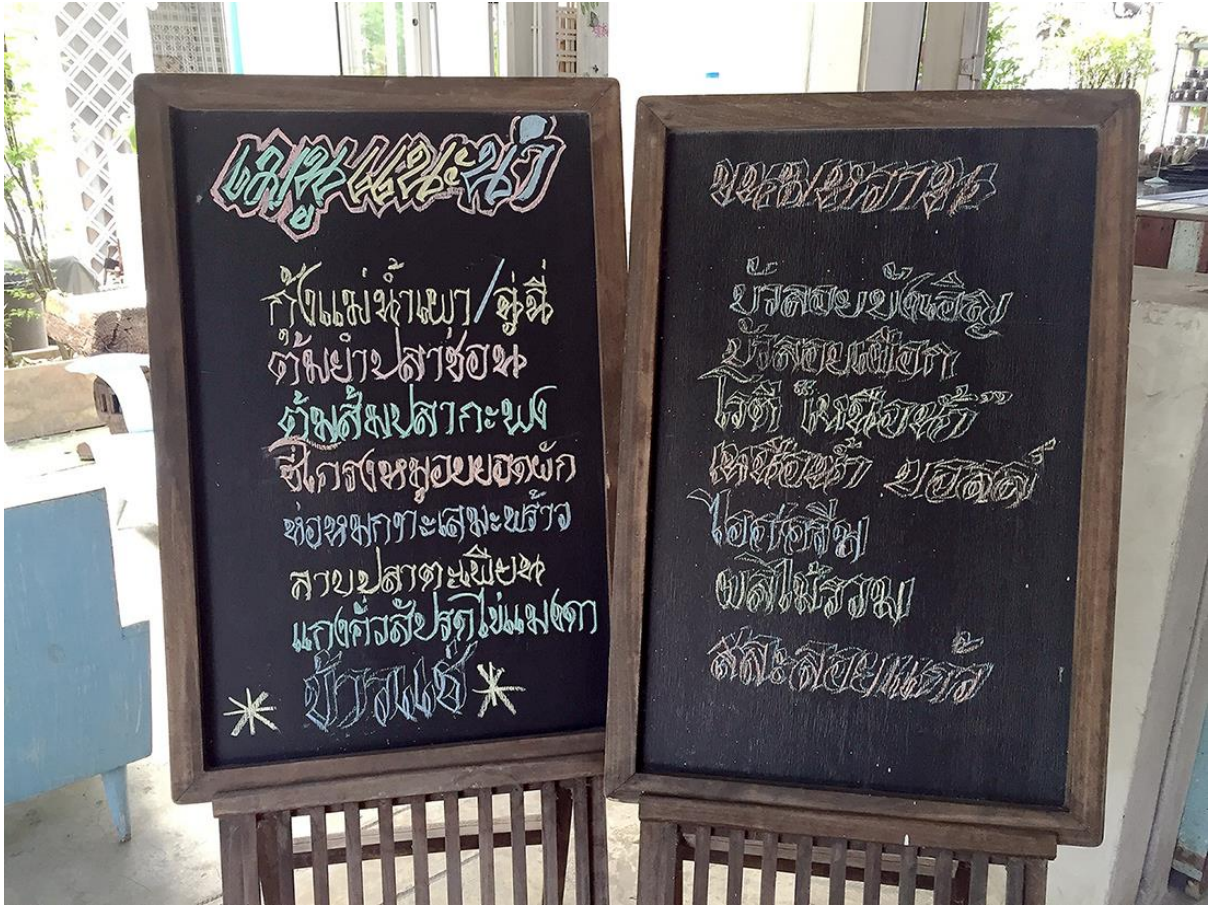 เมนูแนะนำ
กุ้งแม่น้ำเผา/ฉู่ฉี่
ต้มยำปลาช่อน
ต้มส้มปลากะพง
ซี่โครงหมูอบยอดผัก
ห่อหมกทะเลมะพร้าว
ลาบปลาตะเพียน
แกงคั่วสับปรดไข่แมงดา
* ข้าวแช่ *
ขนมหวาน
บัวลอยบังเอิญ
บัวลอยเผือก
โรตี "เหนือน้ำ"
เหนือน้ำ บอลล์
ไอศครีม
ผลไม้รวม
สละลอยแก้ว